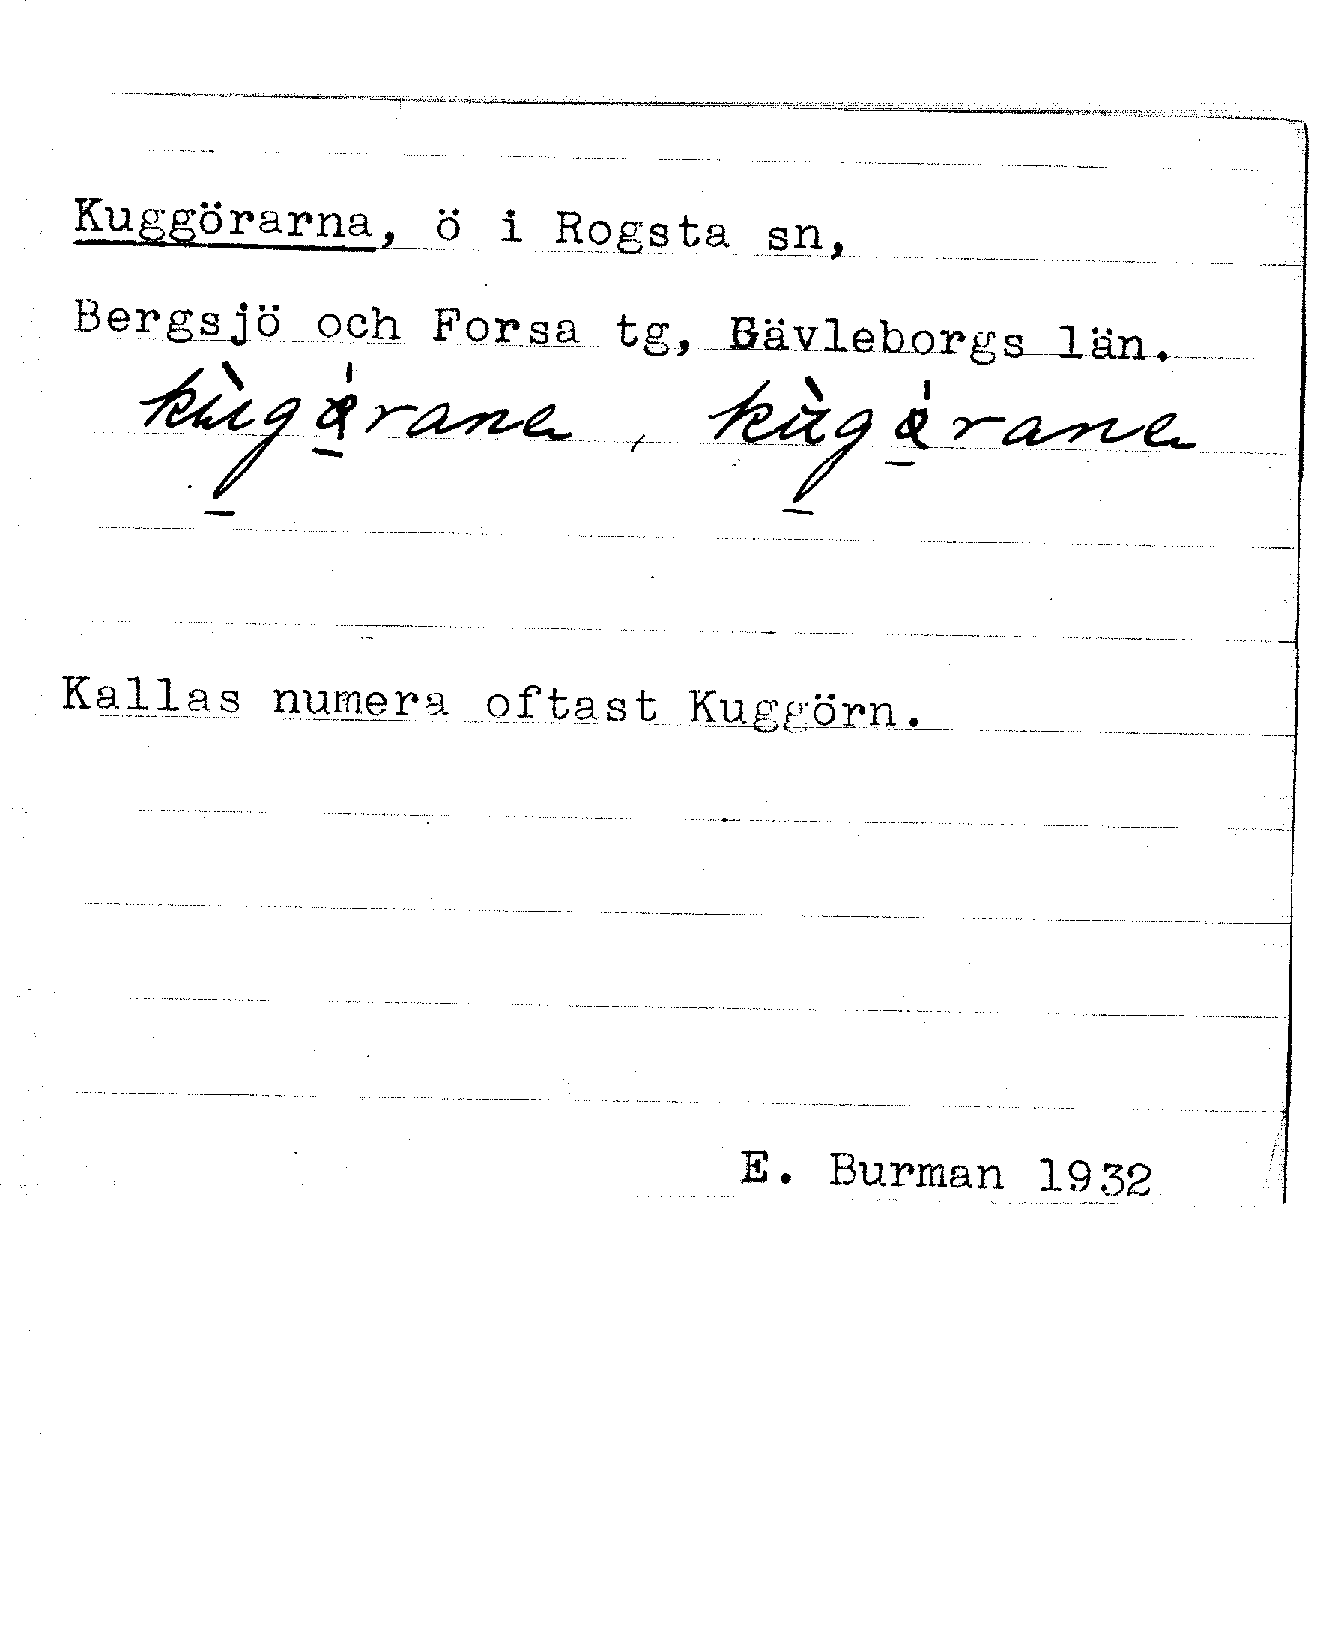 Kuggörarna, ö i Rogsta sn,
Bergsjö och Forsa tg, Gävleborgs län.
Kallas numera oftast Kuggörn.
E. Burman 1932